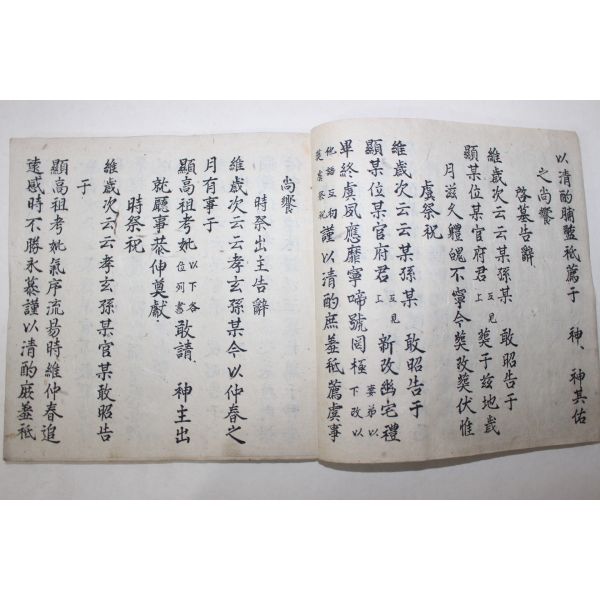 以清酌脯醢祗薦于　神、神其佑
之尚饗
啓墓告辭
維歲次云云某孫某　敢昭告于
顯某位某官府君 互見上 葬于玆地歲
月滋久體魄不寧今葬改葬伏惟
虞祭祝
維歲次云云某孫某　敢昭告于
顯某位某官府君 互見上 新改幽宅禮
畢終虞夙應靡寧啼號罔極 妻弟以下改以
他語互初葬虞祭祝 謹以清酌庶羞祗薦虞事
尚饗
時祭出主告辭
維歲次云云孝玄孫某今以仲春之
月有事于
顯高祖考妣 以下各位列書 敢請　神主出
就廳事恭伸奠獻
時祭祝
維歲次云云孝玄孫某官某敢昭告
于
顯高祖考妣氣序流易時維仲春追
遠感時不勝永慕謹以清酌庶羞祗